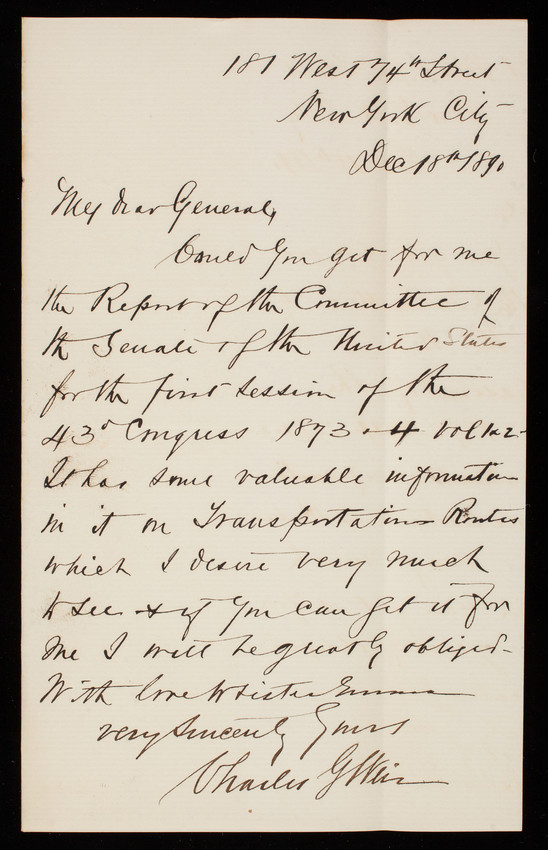 181 West 74th Street
New York City
Dec 18th 1890
My dear General,
Could you get for me
the Report of the Committee of
the Senate of the United States
for the first session of the
43d Congress 1873-4 Vol 1&2-
It has some valuable information
in it on Transportation Routes
which I desire very much
to see & if you can get it for
me I will be greatly obliged-
With love to sister Emma
very Sincerely Yours
Charles G